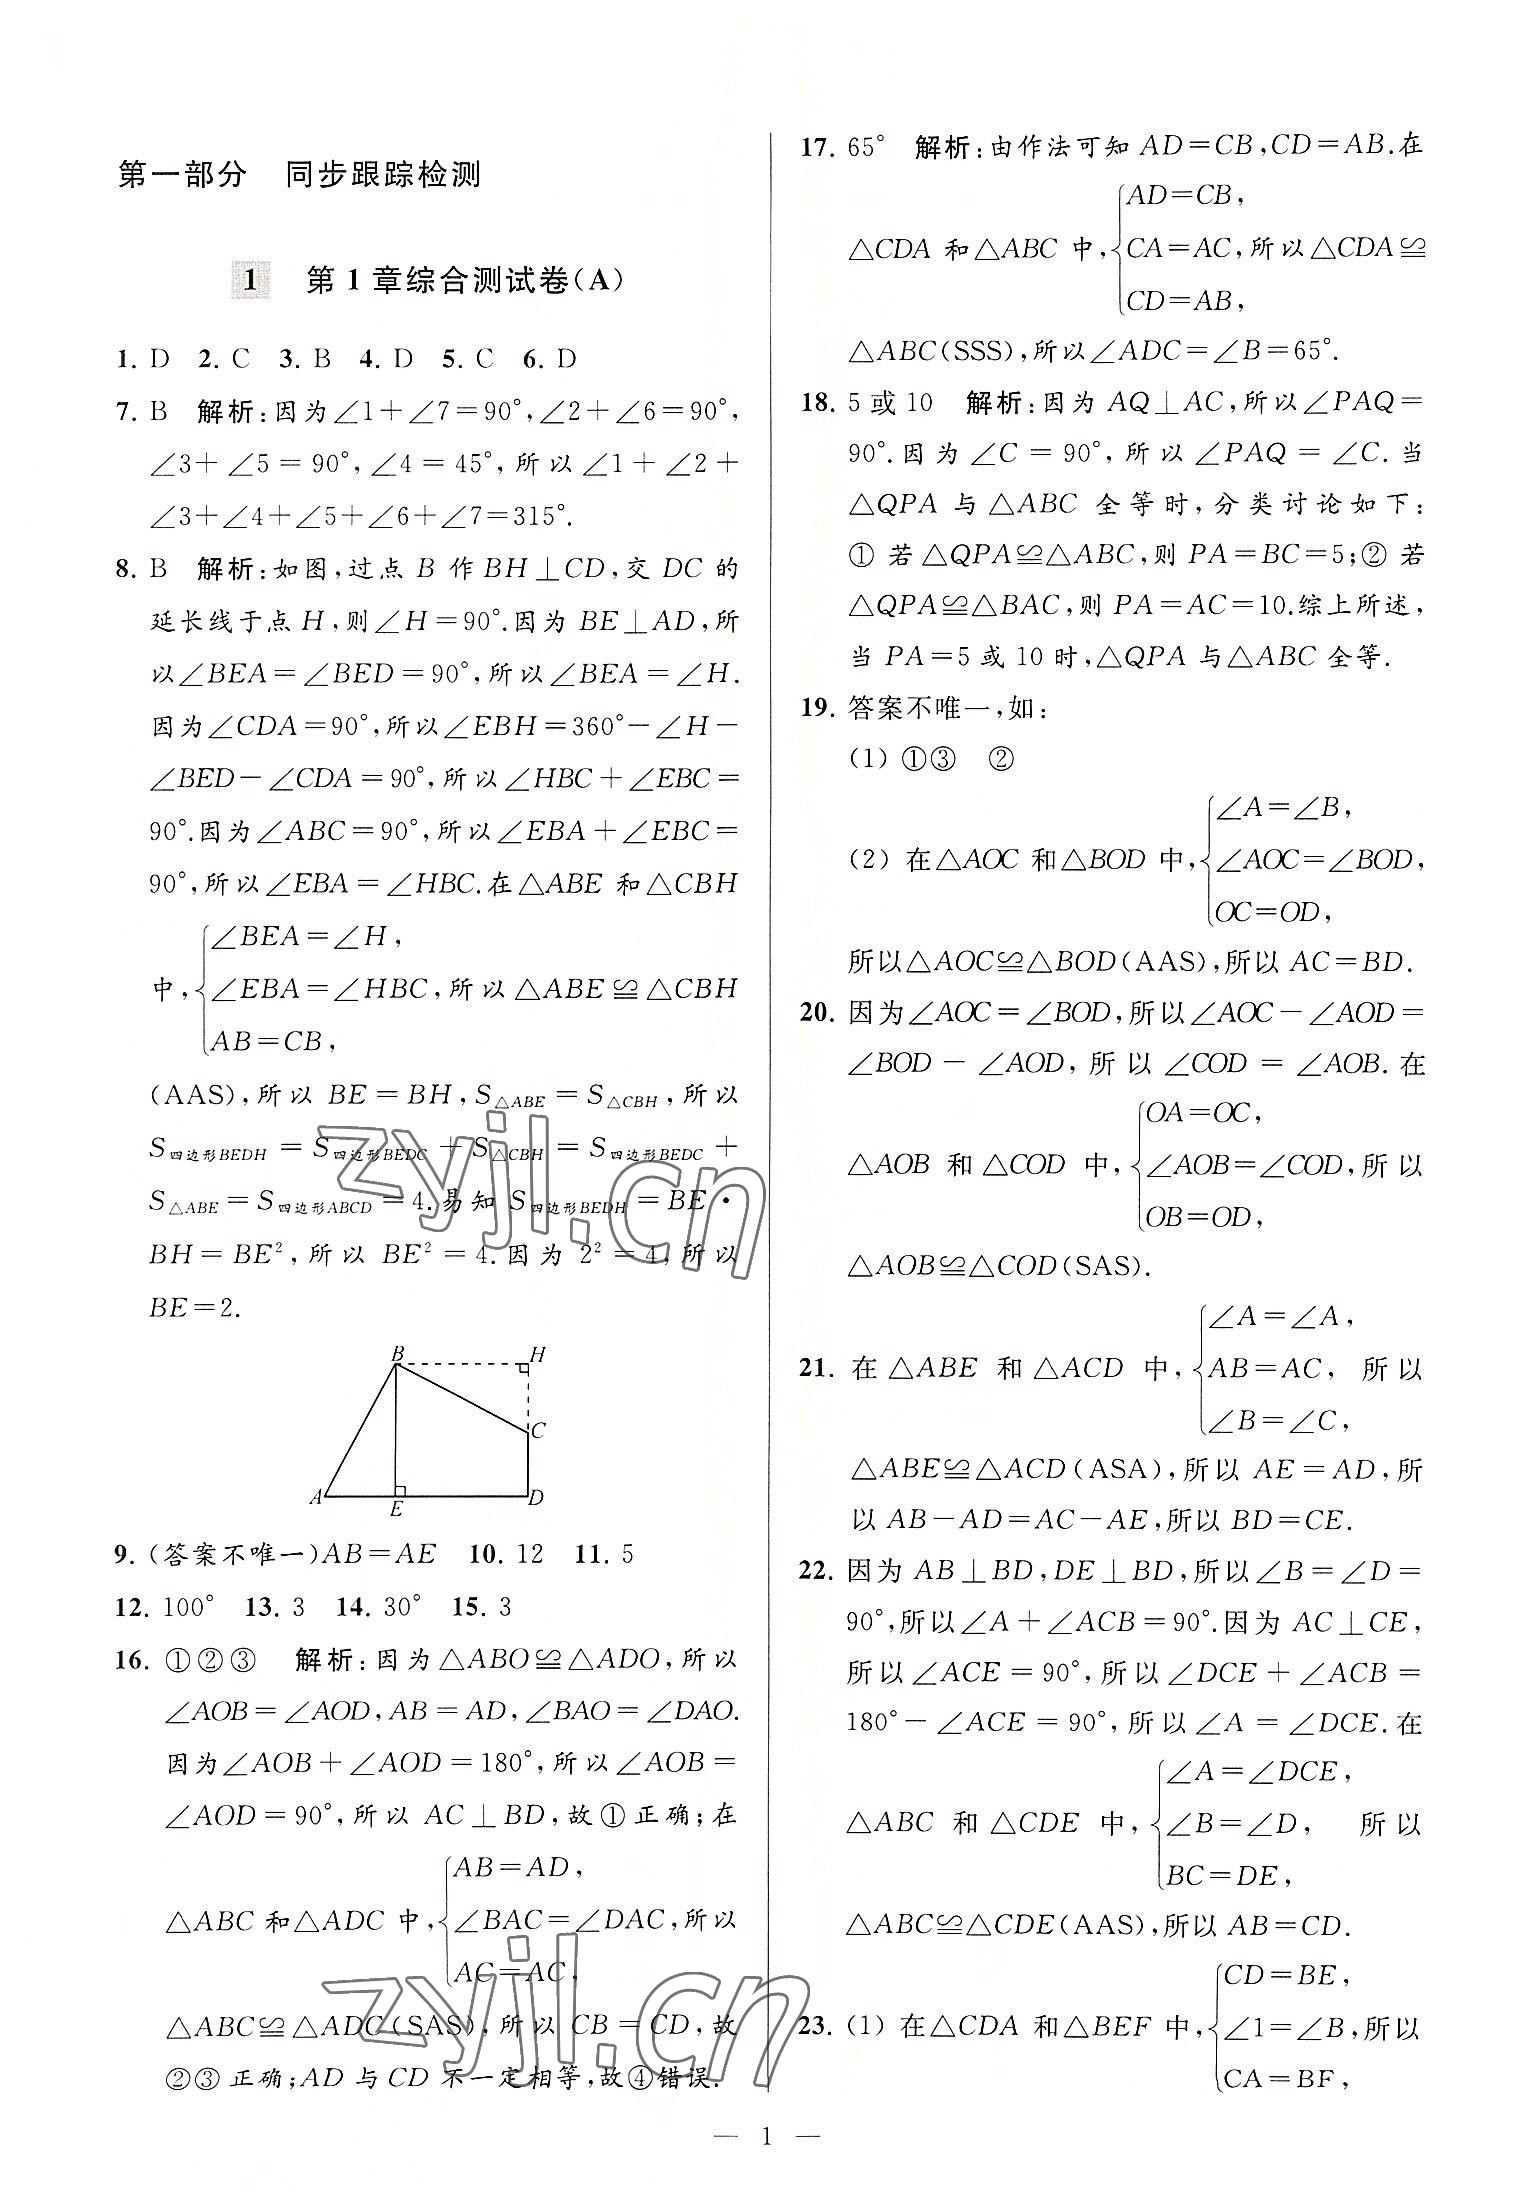 第一部分 同步跟踪检测
1 第1章综合测试卷(A)
1. D 2. C 3. B 4. D 5. C 6. D
7. B 解析:因为∠1+∠7=90°,∠2+∠6=90°,
∠3+∠5=90°,∠4=45°,所以∠1+∠2+
∠3+∠4+∠5+∠6+∠7=315°.
8. B 解析:如图,过点B作BH⊥CD,交DC的
延长线于点H,则∠H=90°.因为BE⊥AD,所
以∠BEA=∠BED=90°,所以∠BEA=∠H.
因为∠CDA=90°,所以∠EBH=360°-∠H-
∠BED-∠CDA=90°,所以∠HBC+∠EBC=
90°.因为∠ABC=90°,所以∠EBA+∠EBC=
90°,所以∠EBA=∠HBC.在△ABE和△CBH
∠BEA=∠H,
中,∠EBA=∠HBC,所以△ABE≌△CBH
AB=CB,
(AAS),所以BE=BH,S△ABE=S△CBH,所以
S四边形BEDH=S四边形BEDC+S△CBH=S四边形BEDC+
S△ABE=S四边形ABCD=4.易知S四边形BEDH=BE·
BH=BE²,所以BE²=4.因为2²=4,所以
BE=2.
B H
C
A E D
9. (答案不唯一)AB=AE 10. 12 11. 5
12. 100° 13. 3 14. 30° 15. 3
16. ①②③ 解析:因为△ABO≌△ADO,所以
∠AOB=∠AOD,AB=AD,∠BAO=∠DAO.
因为∠AOB+∠AOD=180°,所以∠AOB=
∠AOD=90°,所以AC⊥BD,故①正确;在
AB=AD,
△ABC和△ADC中,∠BAC=∠DAC,所以
AC=AC,
△ABC≌△ADC(SAS),所以CB=CD,故
②③正确;AD与CD不一定相等,故④错误.
17. 65° 解析:由作法可知AD=CB,CD=AB.在
AD=CB,
△CDA和△ABC中,CA=AC,所以△CDA≌
CD=AB,
△ABC(SSS),所以∠ADC=∠B=65°.
18. 5或10 解析:因为AQ⊥AC,所以∠PAQ=
90°.因为∠C=90°,所以∠PAQ=∠C.当
△QPA与△ABC全等时,分类讨论如下:
①若△QPA≌△ABC,则PA=BC=5;②若
△QPA≌△BAC,则PA=AC=10.综上所述,
当PA=5或10时,△QPA与△ABC全等.
19. 答案不唯一,如:
(1) ①③ ②
∠A=∠B,
(2) 在△AOC和△BOD中,∠AOC=∠BOD,
OC=OD,
所以△AOC≌△BOD(AAS),所以AC=BD.
20. 因为∠AOC=∠BOD,所以∠AOC-∠AOD=
∠BOD-∠AOD,所以∠COD=∠AOB.在
OA=OC,
△AOB和△COD中,∠AOB=∠COD,所以
OB=OD,
△AOB≌△COD(SAS).
∠A=∠A,
21. 在△ABE和△ACD中,AB=AC,所以
∠B=∠C,
△ABE≌△ACD(ASA),所以AE=AD,所
以AB-AD=AC-AE,所以BD=CE.
22. 因为AB⊥BD,DE⊥BD,所以∠B=∠D=
90°,所以∠A+∠ACB=90°.因为AC⊥CE,
所以∠ACE=90°,所以∠DCE+∠ACB=
180°-∠ACE=90°,所以∠A=∠DCE.在
∠A=∠DCE,
△ABC和△CDE中,∠B=∠D,所以
BC=DE,
△ABC≌△CDE(AAS),所以AB=CD.
CD=BE,
23. (1) 在△CDA和△BEF中,∠1=∠B,所以
CA=BF,
— 1 —
zyjl.cn
zyjl.cn